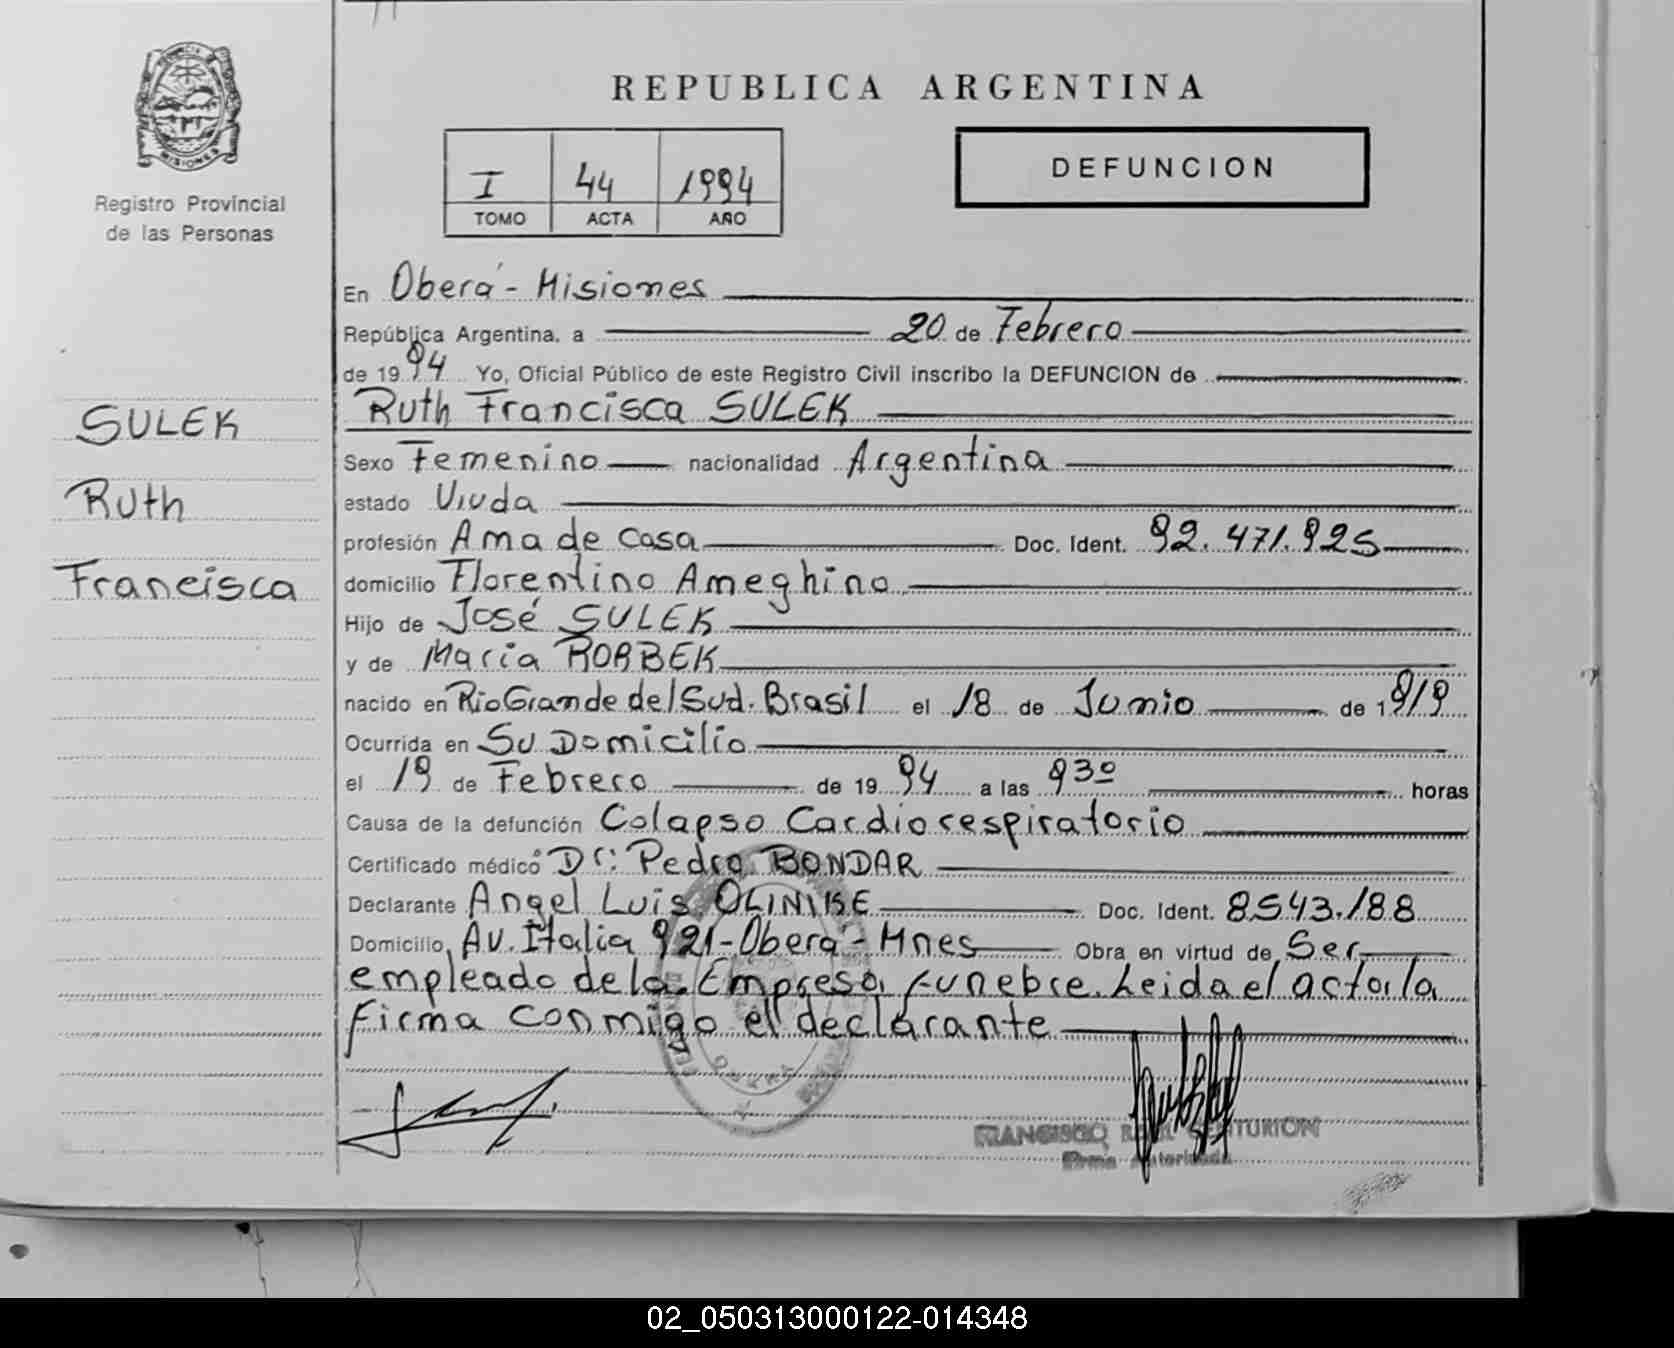 REPUBLICA ARGENTINA
MISIONES
Registro Provincial
de las Personas
I 44 1994
TOMO ACTA AÑO
DEFUNCION
SULEK
Ruth
Francisca
En Oberá - Misiones
República Argentina, a 20 de Febrero
de 1994 Yo, Oficial Público de este Registro Civil inscribo la DEFUNCION de
Ruth Francisca SULEK
Sexo Femenino nacionalidad Argentina
estado Viuda
profesión Ama de Casa Doc. Ident. 92.471.925
domicilio Florentino Ameghino
Hijo de José SULEK
y de Maria RORBEK
nacido en Rio Grande del Sud. Brasil el 18 de Junio de 1919
Ocurrida en Su Domicilio
el 19 de Febrero de 1994 a las 9 30 horas
Causa de la defunción Colapso Cardiorespiratorio
Certificado médico Dr: Pedro BONDAR
Declarante Angel Luis Doc. Ident. 8.543.188
Domicilio Av. Italia 921 - Oberá - Mnes Obra en virtud de Ser
empleado de la Empresa Funebre. Leida el acta, la
Firma conmigo el declarante
FRANCISCO RAUL CENTURION
Firma Autorizada
02_050313000122-014348